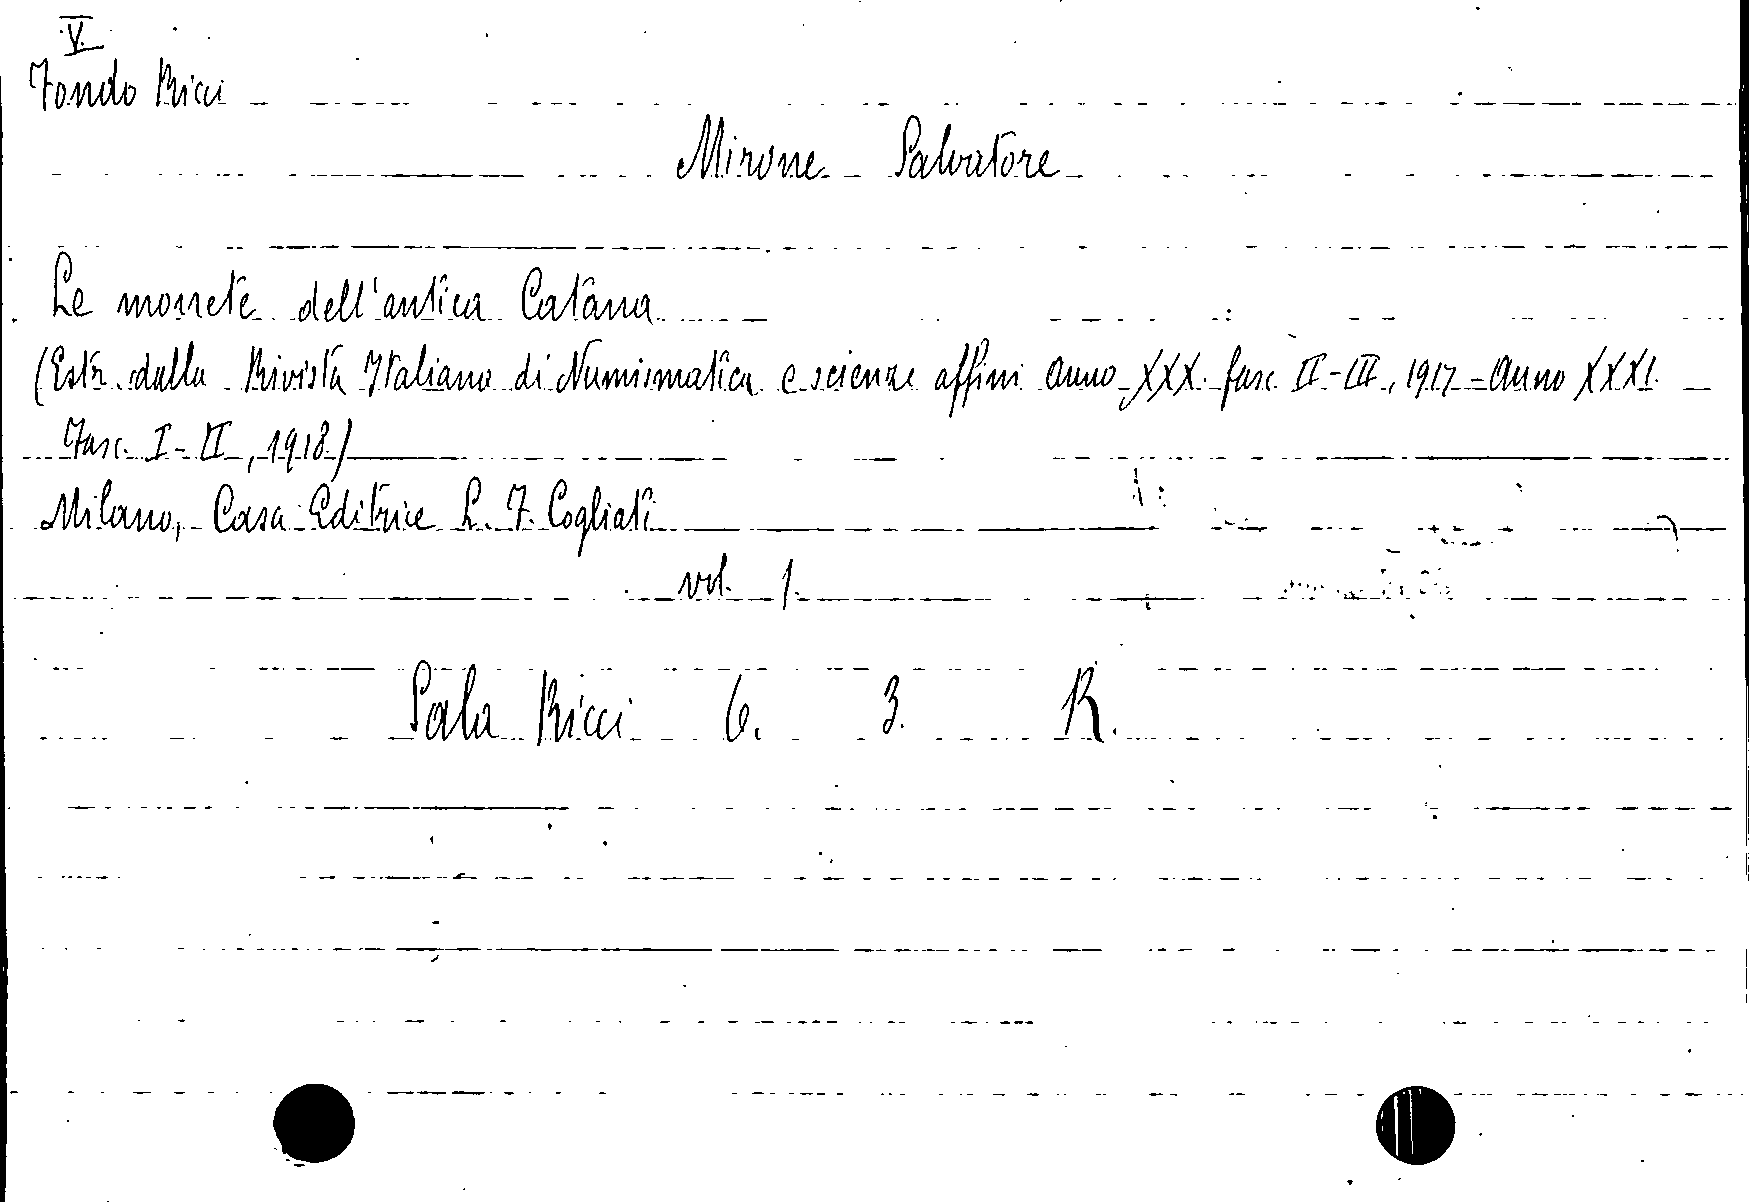 V.
Fondo Ricci
Mirone Salvatore
Le monete dell'antica Catana
(Estr. dalla Rivista Italiana di Numismatica e scienze affini anno XXX. fasc. II-III, 1917 - Anno XXXI.
Fasc. I-II, 1918)
Milano, Casa Editrice L. F. Cogliati
vol. 1.
Sala Ricci 6. 3. R.